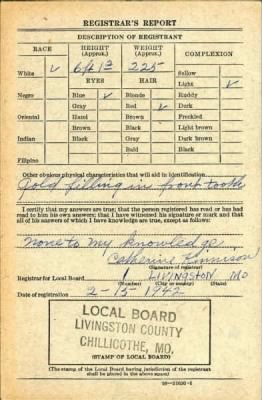 REGISTRAR'S REPORT
DESCRIPTION OF REGISTRANT
RACE HEIGHT (Approx.) WEIGHT (Approx.) COMPLEXION
White ✓ 6 ft 1 225 Sallow
EYES HAIR Light ✓
Negro Blue ✓ Blonde Ruddy
Gray Red ✓ Dark
Oriental Hazel Brown Freckled
Brown Black Light brown
Indian Black Gray Dark brown
Bald Black
Filipino
Other obvious physical characteristics that will aid in identification
Gold filling in front tooth
I certify that my answers are true; that the person registered has read or has had
read to him his own answers; that I have witnessed his signature or mark and that
all of his answers of which I have knowledge are true, except as follows:
None to my knowledge
Catherine
(Signature of registrar)
Registrar for Local Board 1 LIVINGSTON MO
(Number) (City or county) (State)
Date of registration 2-15-1942
LOCAL BOARD
LIVINGSTON COUNTY
CHILLICOTHE, MO.
(STAMP OF LOCAL BOARD)
(The stamp of the Local Board having jurisdiction of the registrant
shall be placed in the above space.)